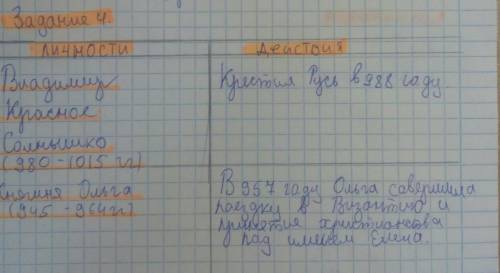 Задание 4.
Личности
Действия
Владимир
Красное
Солнышко
(980-1015 гг)
Крестил Русь в 988 году.
Княгиня Ольга
(945 - 964 гг)
В 957 году Ольга совершила
поездку в Византию и
принятия христианства
под именем Елена.